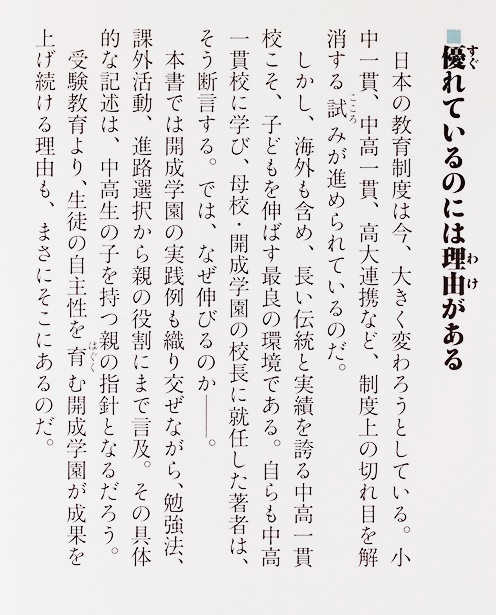 ■優れているのには理由がある
日本の教育制度は今、大きく変わろうとしている。小
中一貫、中高一貫、高大連携など、制度上の切れ目を解
消する試みが進められているのだ。
しかし、海外も含め、長い伝統と実績を誇る中高一貫
校こそ、子どもを伸ばす最良の環境である。自らも中高
一貫校に学び、母校・開成学園の校長に就任した著者は、
そう断言する。では、なぜ伸びるのか——。
本書では開成学園の実践例も織り交ぜながら、勉強法、
課外活動、進路選択から親の役割にまで言及。その具体
的な記述は、中高生の子を持つ親の指針となるだろう。
受験教育より、生徒の自主性を育む開成学園が成果を
上げ続ける理由も、まさにそこにあるのだ。